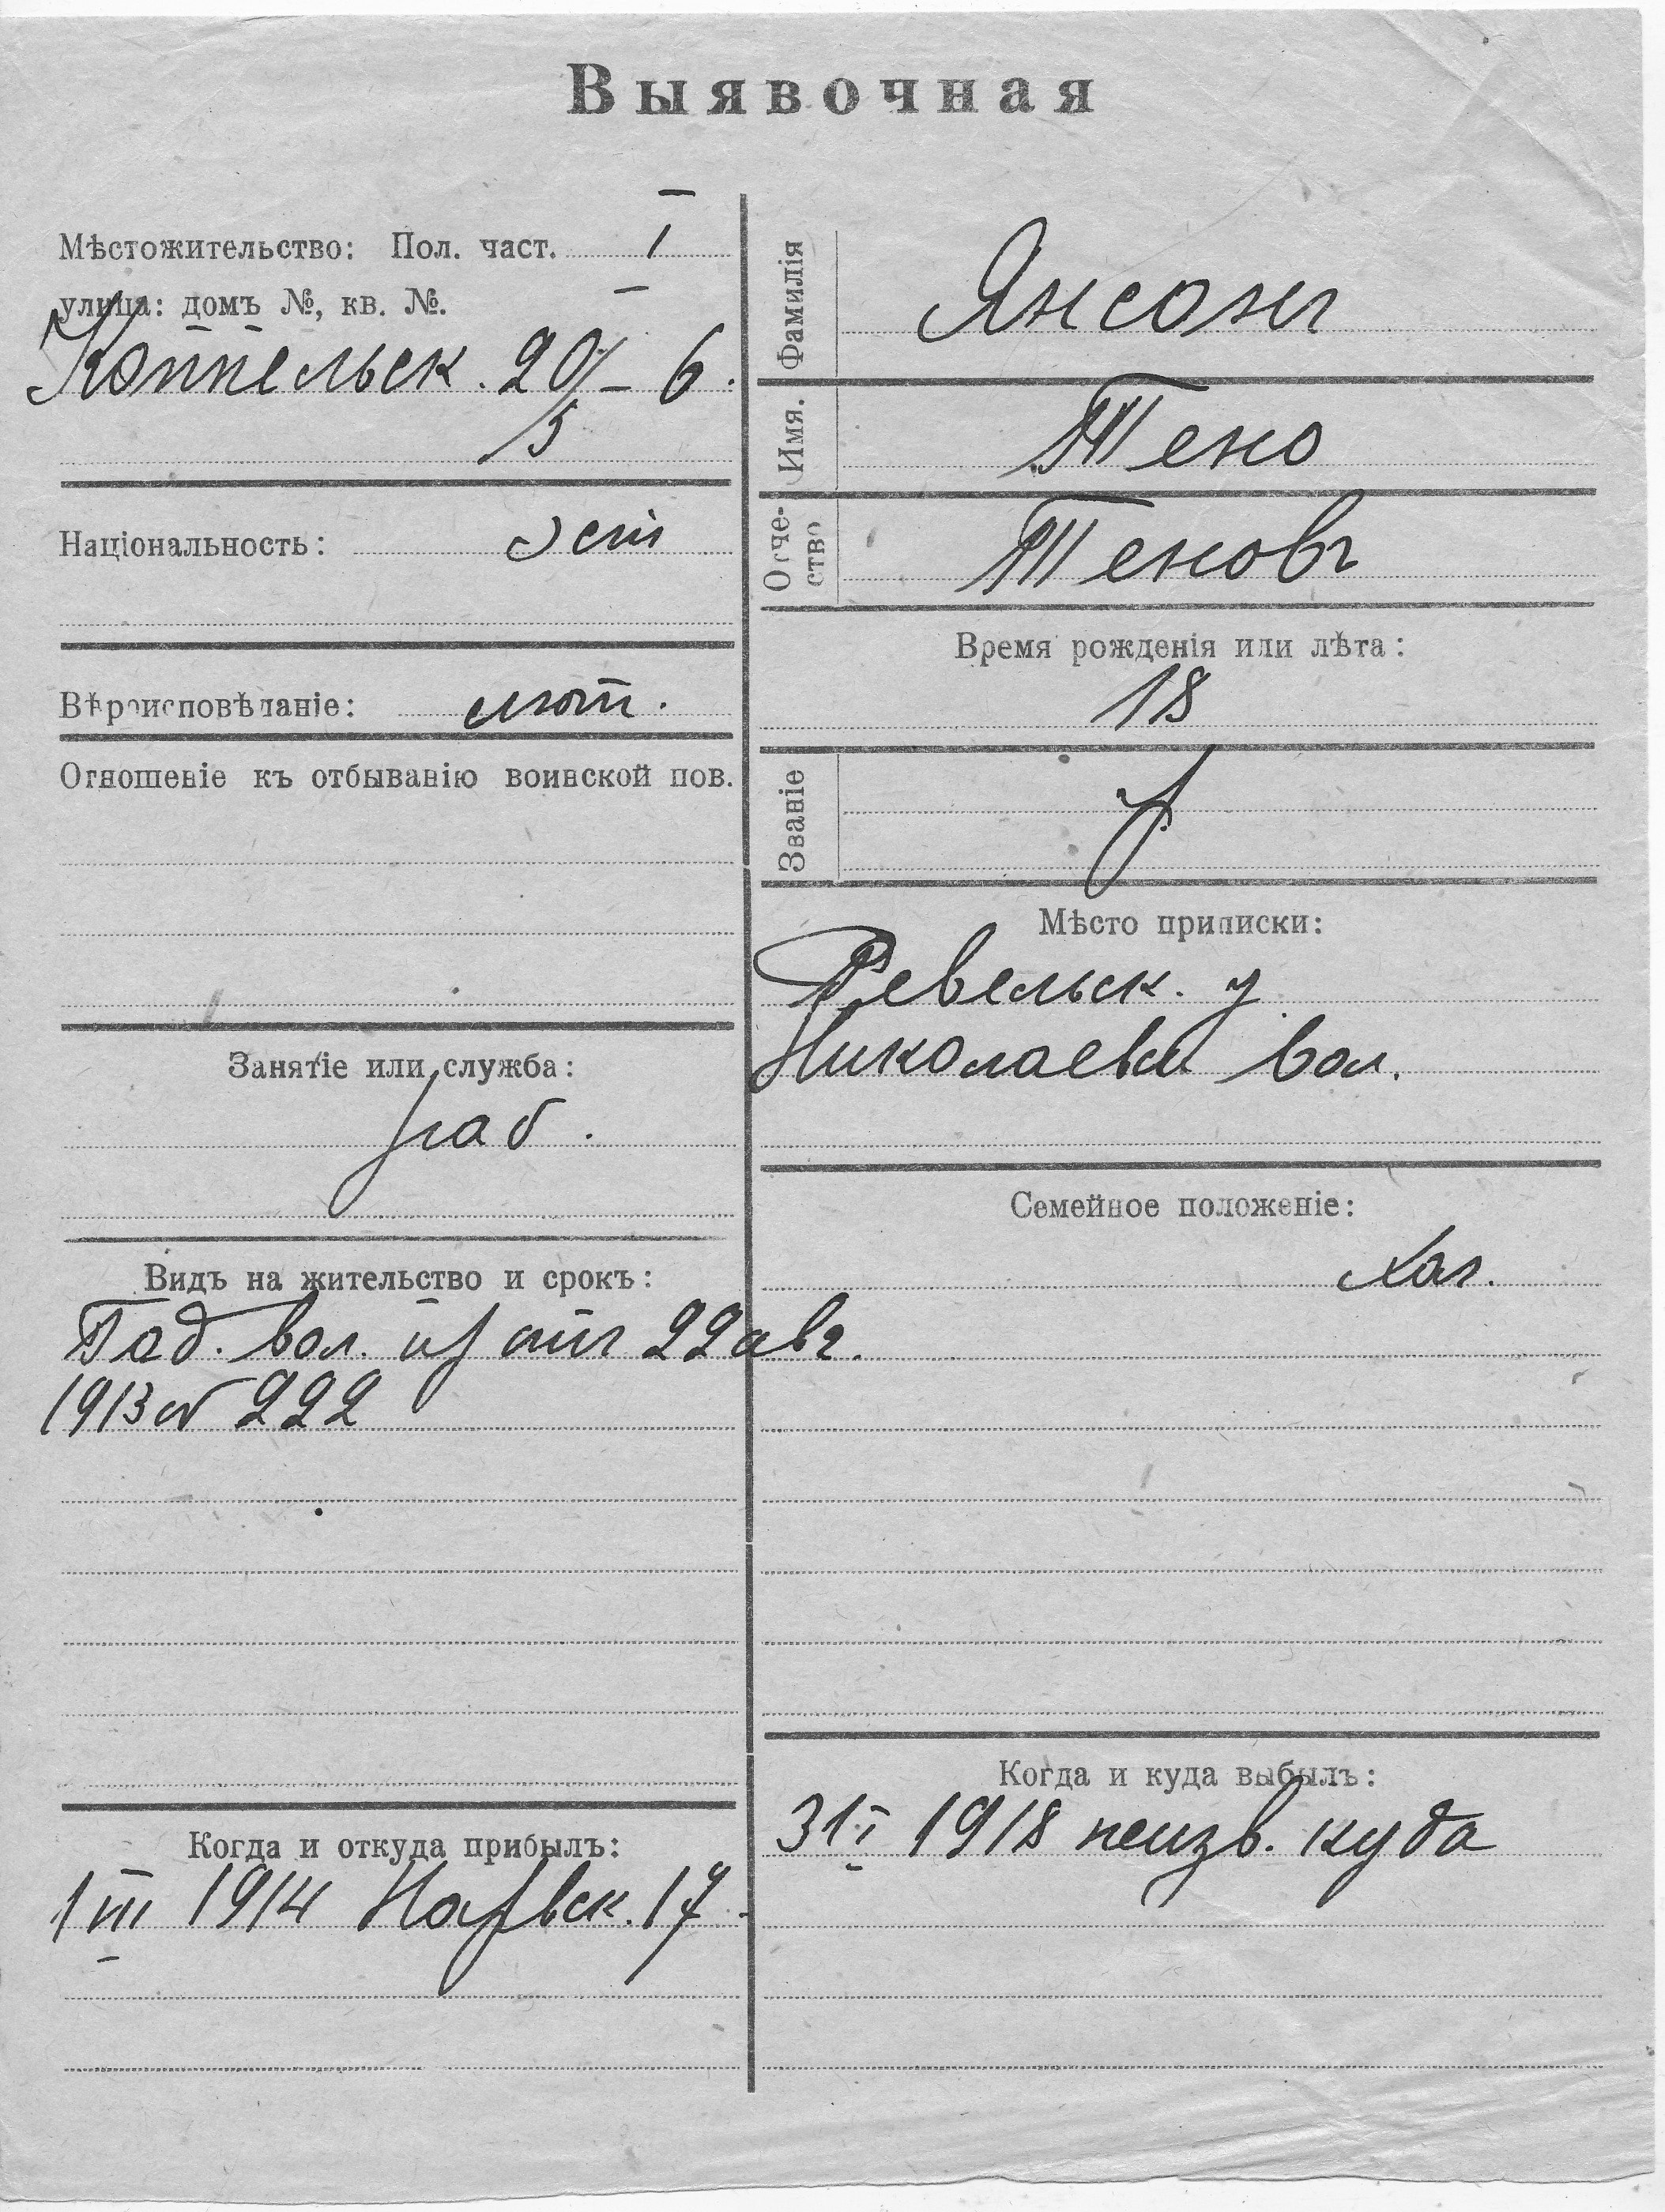 Выявочная
Мѣстожительство: Пол. част. I
улица: домъ №, кв. №.
Коппельск. 20/5 – 6.
Національность: эст
Вѣроисповѣданіе: лют.
Отношеніе къ отбыванію воинской пов.
Занятіе или служба:
раб.
Видъ на жительство и срокъ:
Год. вол. отъ 22 авг.
1913 № 222
Когда и откуда прибылъ:
1 III 1914 Нарвск. 17.
Фамилія Янсонъ
Имя. Тено
Отчество Теновъ
Время рожденія или лѣта:
18
Званіе
Мѣсто приписки:
Ревельск. у
Николаевск вол.
Семейное положеніе:
хол.
Когда и куда выбылъ:
31 I 1918 неизв. куда